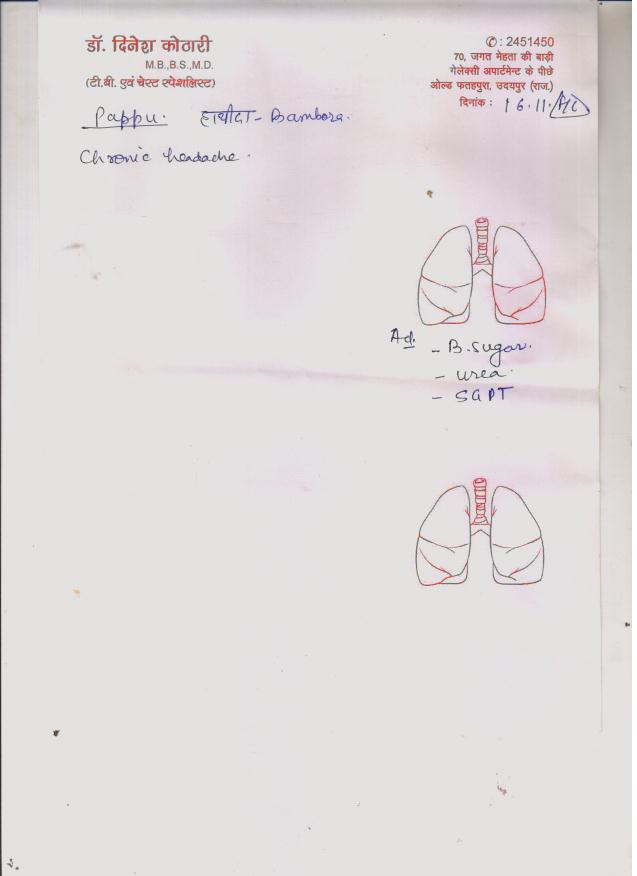 डॉ. दिनेश कोठारी
M.B.,B.S.,M.D.
(टी.बी. एवं चेस्ट स्पेशलिस्ट)
✆: 2451450
70, जगत मेहता की बाड़ी
गेलेक्सी अपार्टमेन्ट के पीछे
ओल्ड फतहपुरा, उदयपुर (राज.)
दिनांक : 16.11.
Pappu. - Bambora.
Chronic headache.
Ad.
- B. Sugar.
- urea.
- SGPT